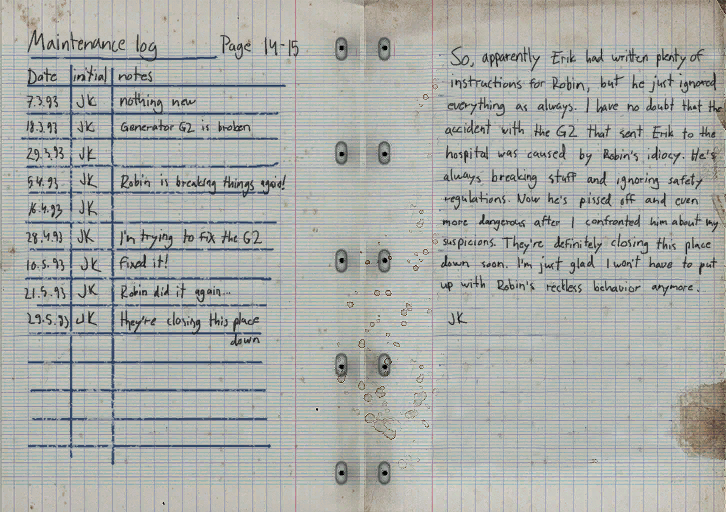 Maintenance log Page 14-15
Date initial notes
7.3.93 JK nothing new
18.3.93 JK Generator G2 is broken
29.3.93 JK
5.4.93 JK Robin is breaking things again!
16.4.93 JK
28.4.93 JK I'm trying to fix the G2
10.5.93 JK Fixed it!
21.5.93 JK Robin did it again...
29.5.93 JK they're closing this place
down
So, apparently Erik had written plenty of
instructions for Robin, but he just ignored
everything as always. I have no doubt that the
accident with the G2 that sent Erik to the
hospital was caused by Robin's idiocy. He's
always breaking stuff and ignoring safety
regulations. Now he's pissed off and even
more dangerous after I confronted him about my
suspicions. They're definitely closing this place
down soon. I'm just glad I won't have to put
up with Robin's reckless behavior anymore.
JK